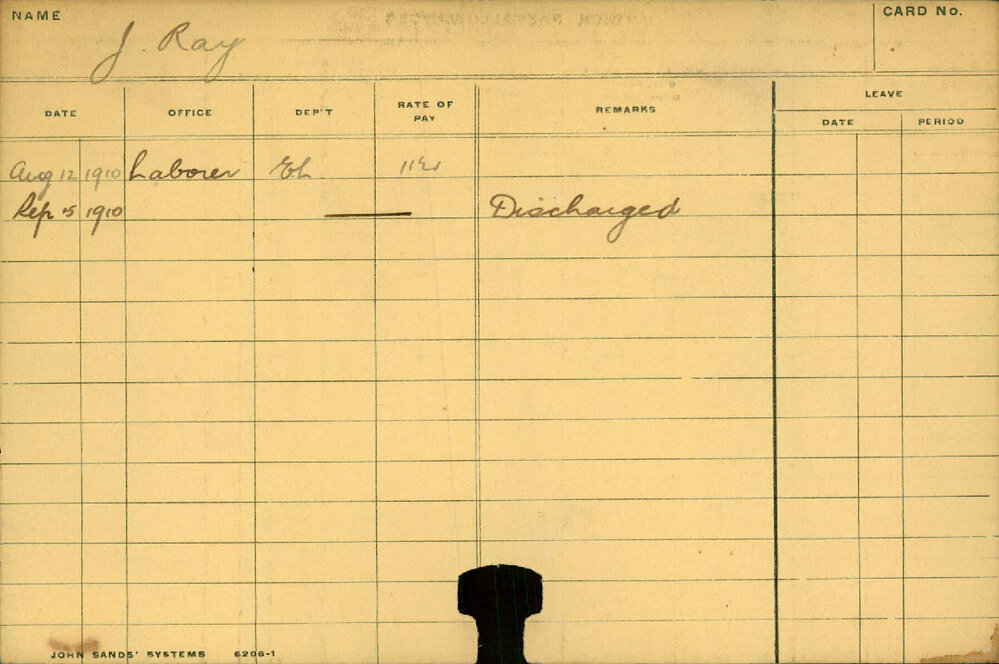 NAME
J. Ray
CARD No.
DATE OFFICE DEP'T RATE OF PAY REMARKS LEAVE
DATE PERIOD
Aug 12 1910 Laborer El.
Sep 5 1910 Discharged
JOHN SANDS' SYSTEMS 6206-1